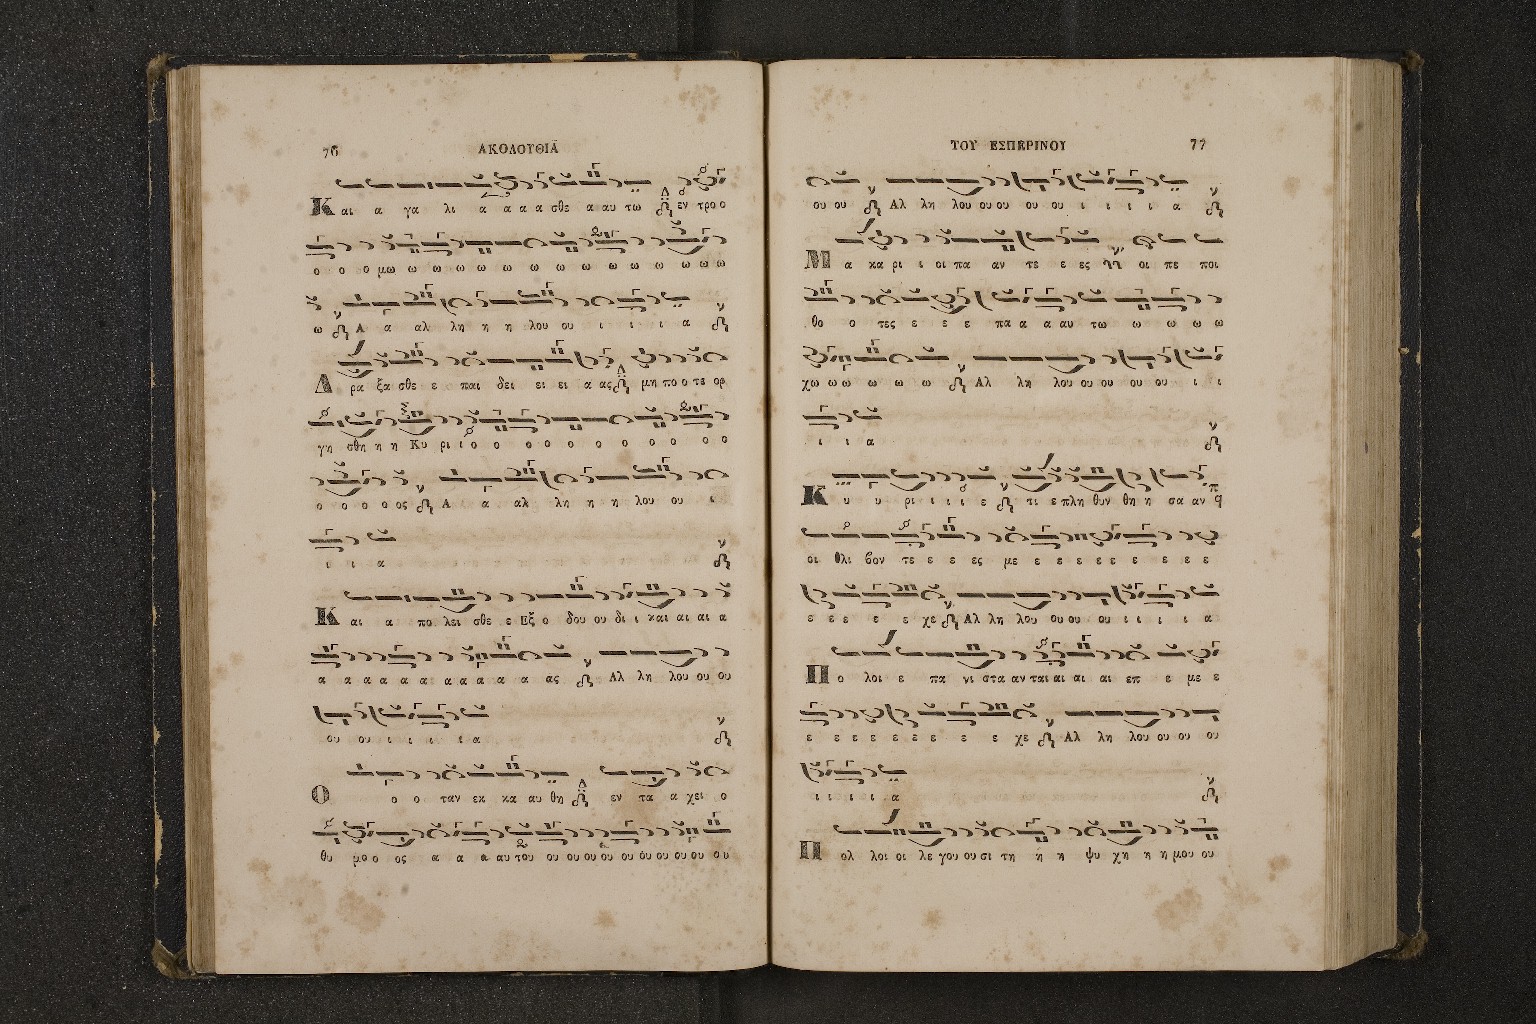 76 ΑΚΟΛΟΥΘΙΑ
Και α γα λι α α α α σθε α αυ τω εν τρο ο
ο ο ο μω ω ω ω ω ω ω ω ω ω ω ω ω ω ω
ω Α α αλ λη η η λου ου ι ι ι α
Δ ρα ξα σθε ε παι δει ει ει α ας μη πο ο τε ορ
γη σθη η η Κυ ρι ι ο ο ο ο ο ο ο ο ο ο ο
ο ο ο ο ος Α α αλ λη η η λου ου ι
ι ι α
Και α πο λει σθε ε Εξ ο δου ου δι ι και αι αι α
α α α α α α α α α α α ας Αλ λη λου ου ου
ου ου ι ι ι ι α
Ο ο ο ταν εκ κα αυ θη εν τα α χει ο
θυ μο ο ος α α α αυ του ου ου ου ου ου ου ου ου ου ου
ΤΟΥ ΕΣΠΕΡΙΝΟΥ 77
ου ου Αλ λη λου ου ου ου ου ι ι ι ι α
Μ α κα ρι ι οι πα αν τε ε ες οι πε ποι
θο ο τες ε ε ε πα α α αυ τω ω ω ω ω
χω ω ω ω ω ω Αλ λη λου ου ου ου ου ι ι
ι ι α
Κ υ υ ρι ι ι ι ε τι ε πλη θυν θη η σα αν
οι θλι βον τε ε ε ες με ε ε ε ε ε ε ε ε
ε ε ε ε ε χε Αλ λη λου ου ου ου ι ι ι ι α
Π ο λοι ε πα νι στα αν ται αι αι αι επ ε με ε
ε ε ε ε ε ε ε ε ε χε Αλ λη λου ου ου ου
ι ι ι ι α
Π ολ λοι οι λε γου ου σι τη η η ψυ χη η η μου ου